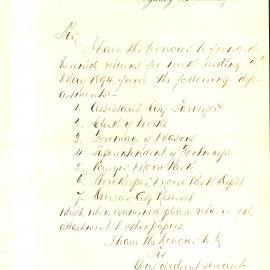 Sir,
I have the honour to forward
herewith returns for week ending
May 1894, from the following dep-
artments:-
1. Assistant City Surveyor
2. Clerk of Works
3. Foreman of Masons
4. Superintendent of Footways
5. Ranger Moore Park
6. Storekeeper Moore Park Depot
7. Overseer City Reserves
which when examined please return for
attachment to other papers.
I have the honour to be
Sir
Your obedient servant